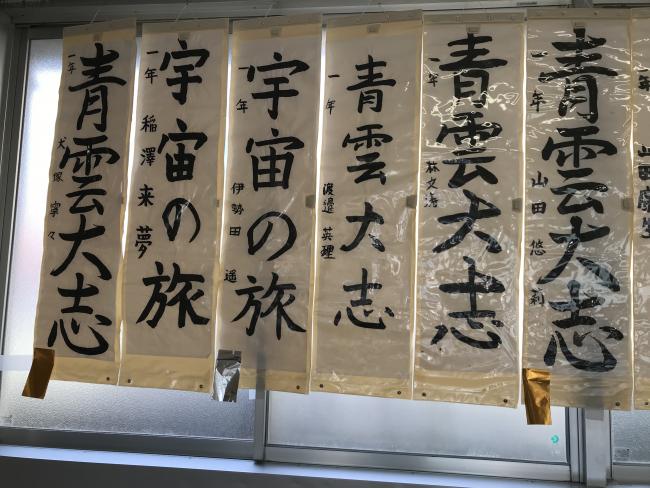 青雲大志
一年 犬塚寧々
宇宙の旅
一年 稲澤来夢
宇宙の旅
一年 伊勢田 遥
青雲大志
一年 渡邉 英理
青雲大志
一年 林文清
青雲大志
一年 山田 悠莉
一年 山田慶生